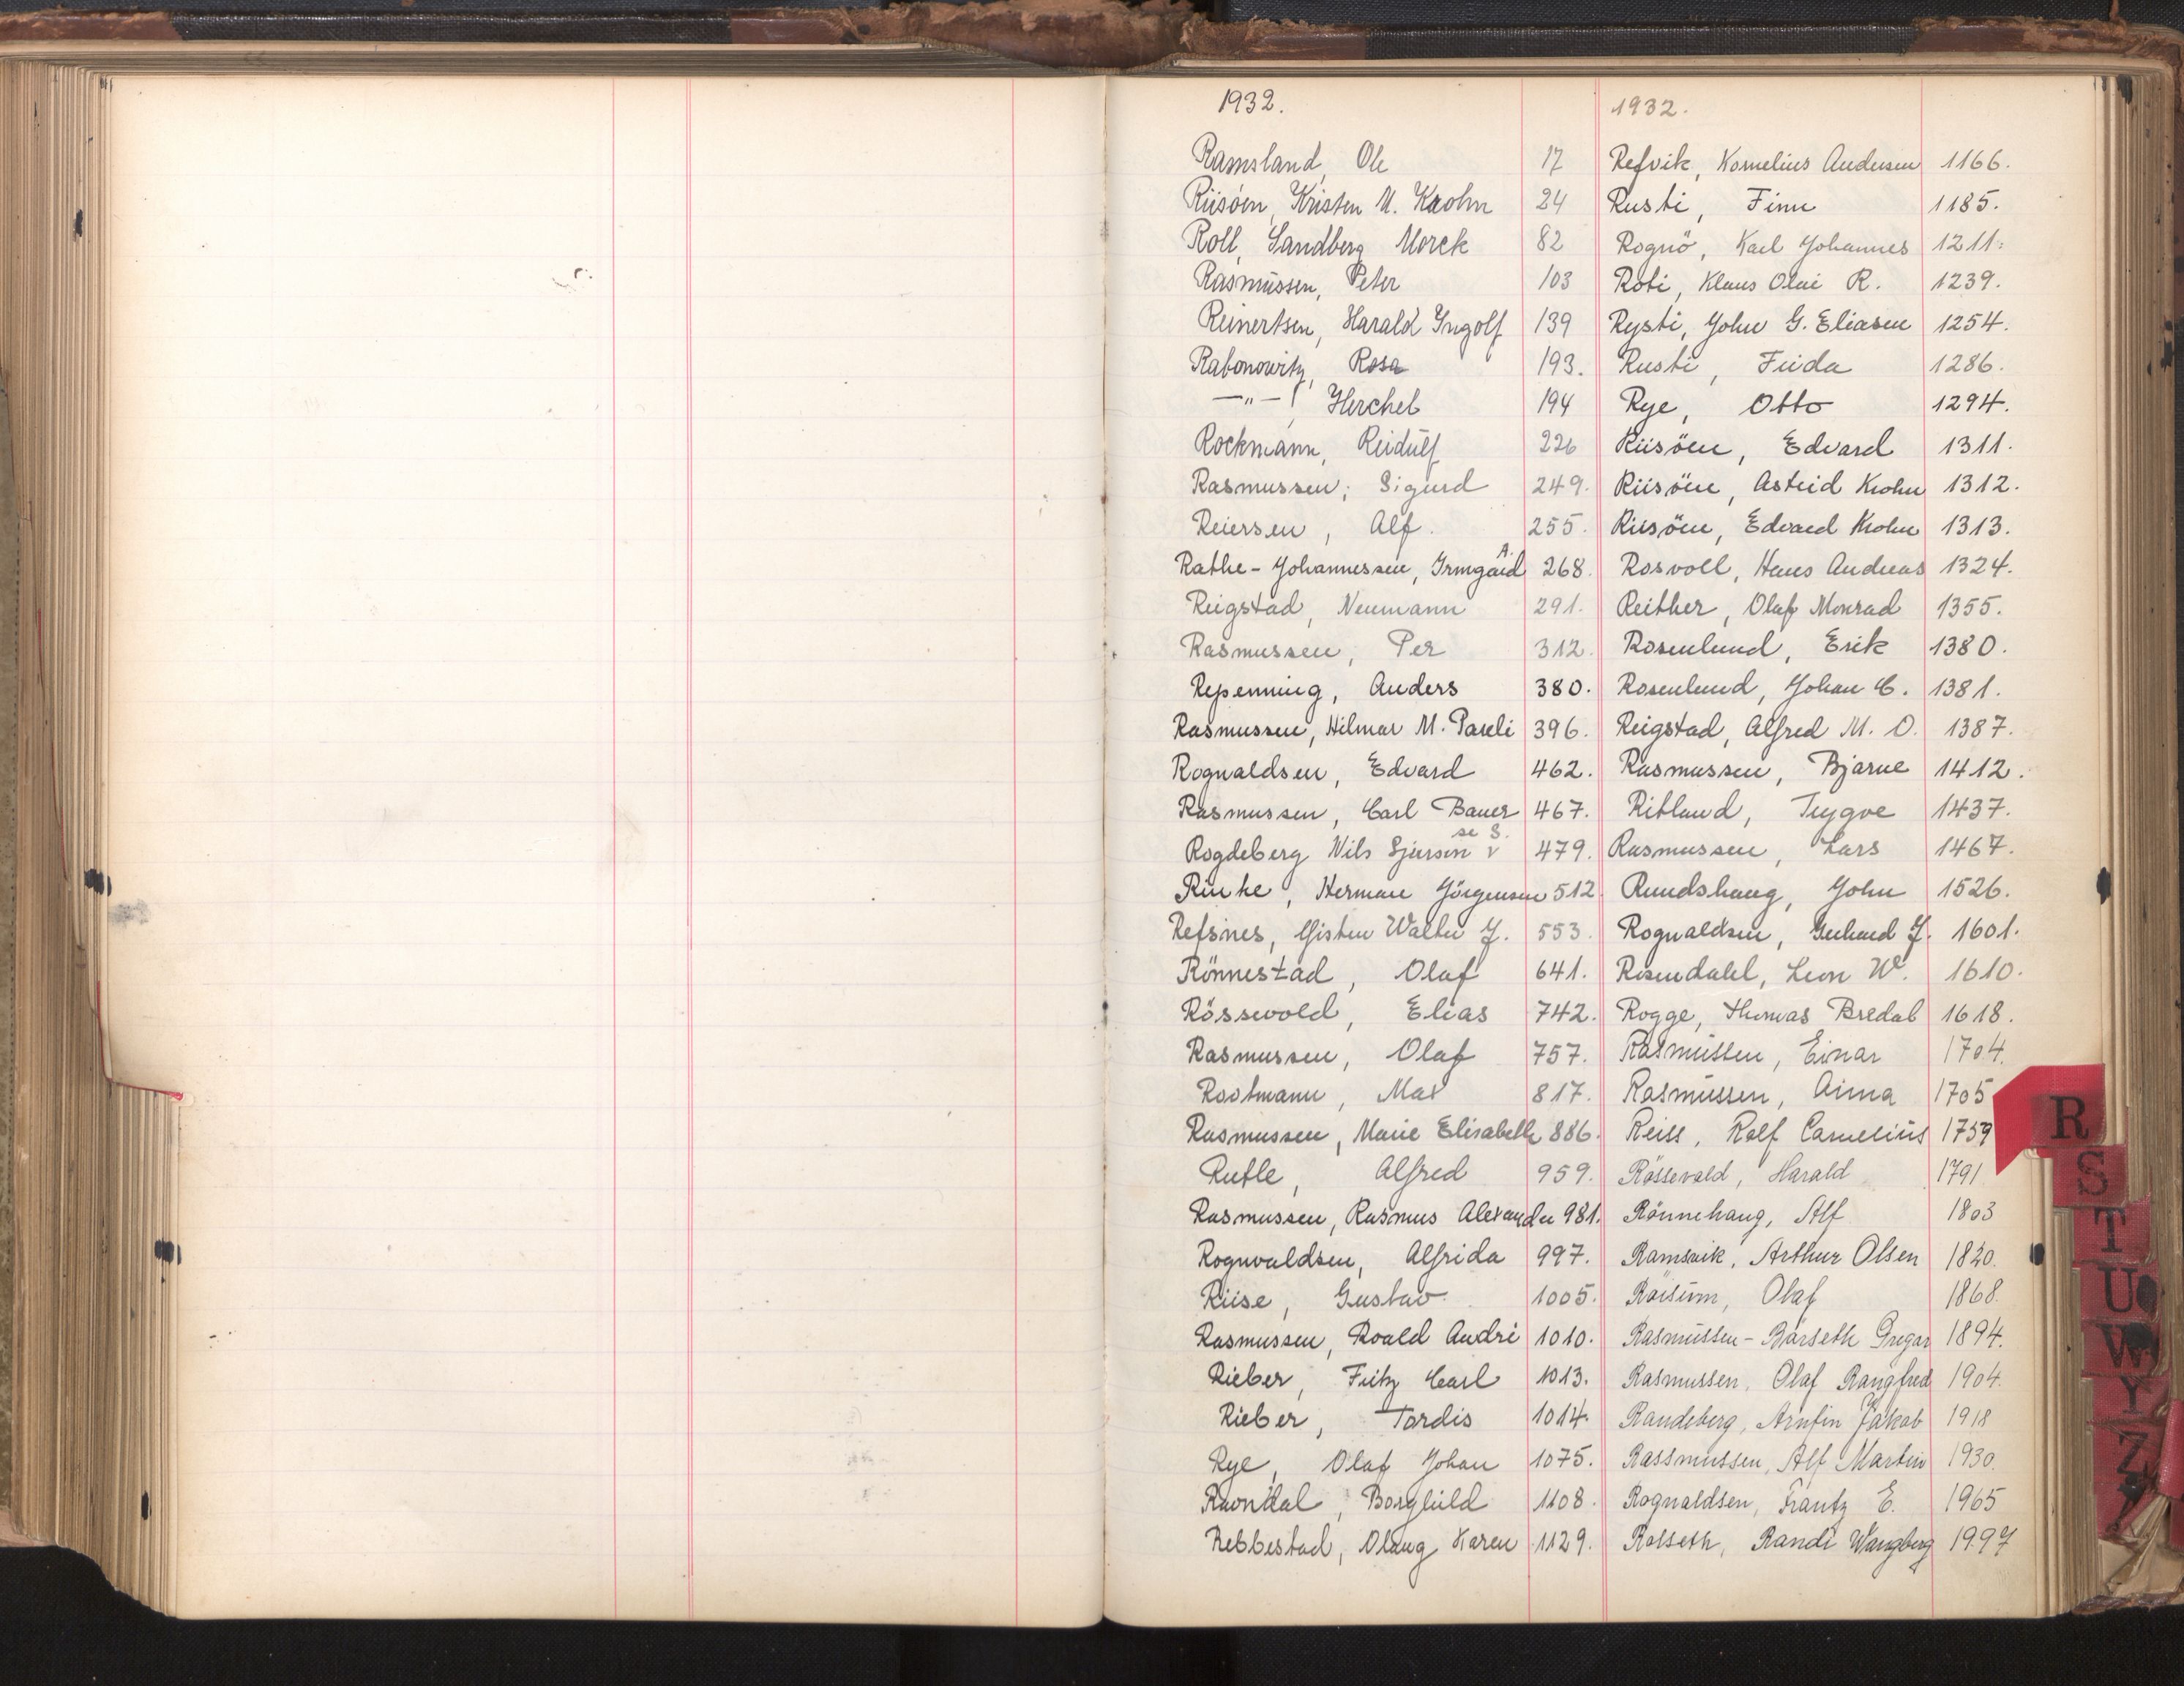 1932.
Ramsland, Ole 17
Riisöen, Kristen M. Krohn 24
Roll, Sandberg Morck 82
Rasmussen, Peter 103
Reinertsen, Harald Yngolf 139
Rabonowitz, Rosa 193.
—"—, Herchel 194
Rockmann, Reidulf 226
Rasmussen, Sigurd 249.
Reiersen, Alf. 255.
Rathe-Johannessen, Irmgard A. 268.
Reigstad, Neumann 291.
Rasmussen, Per 312.
Repenning, Anders 380.
Rasmussen, Hilmar M. Paseli 396.
Rognaldsen, Edvard 462.
Rasmussen, Carl Bauer 467.
Rogdeberg Nils Sjursen v se S. 479.
Rinke, Herman Jörgensen 512.
Refsnes, Walter J. 553.
Rönnestad, Olaf 641.
Rössevold, Elias 742.
Rasmussen, Olaf 757.
Rootmann, Max 817.
Rasmussen, Marie Elisabeth 886.
Rutle, Alfred 959.
Rasmussen, Rasmus Alexander 981.
Rognvaldsen, Alfrida 997.
Riise, Gustav 1005.
Rasmussen, Roald André 1010.
Rieber, Fritz Carl 1013.
Rieber, Tordis 1014.
Rye, Olaf Johan 1075.
Ravndal, Borghild 1108.
Rebbestad, Olaug Karen 1129.
1932.
Refvik, Kornelius Andersen 1166.
Rusti, Finn 1185.
Rognö, Karl Johannes 1211.
Roti, Klaus Olai R. 1239.
Rysti, John G. Eliasen 1254.
Rusti, Frida 1286.
Rye, Otto 1294.
Riisöen, Edvard 1311.
Riisöen, Astrid Krohn 1312.
Riisöen, Edvard Krohn 1313.
Rosvoll, Hans Andreas 1324.
Reither, Olaf Monrad 1355.
Rosenlund, Erik 1380.
Rosenlund, Johan C. 1381.
Reigstad, Alfred M. O. 1387.
Rasmussen, Bjarne 1412.
Ritland, Trygve 1437.
Rasmussen, Lars 1467.
Rundshaug, John 1526.
Rognaldsen, Gerhard J. 1601.
Rosendahl, Leon W. 1610.
Rogge, Thomas Bredal 1618.
Rasmussen, Einar 1704.
Rasmussen, Anna 1705
Reiss, Rolf Cornelius 1759
Rössevold, Harald 1791
Rönnehaug, Alf 1803
Ramsvik, Arthur Olsen 1820.
Röisum, Olaf 1868.
Rasmussen-Barseth Gregar 1894.
Rasmussen, Olaf Rangfred 1904.
Randeberg, Arnfin Jakob 1918
Rassmussen, Alf Martin 1930.
Rognaldsen, Frantz E. 1965
Rolseth, Randi Wangberg 1997
R
S
T
U
W
Y
Z